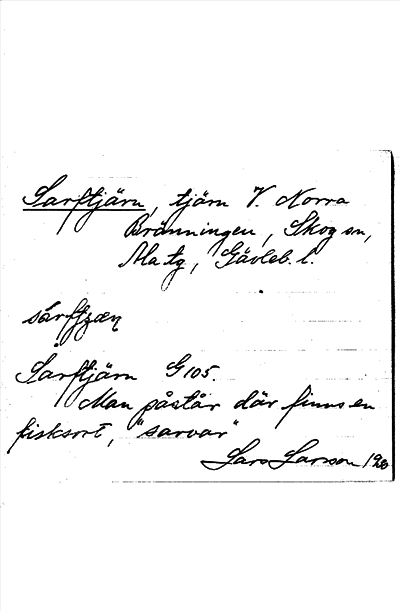 Sarftjärn, tjärn V. Norra
Bränningen, Skog sn,
Ala tg, Gävleb. l.
Sarftjärn G 105.
Man påstår där finns en
fisksort, "sarvar"
Lars Larsson